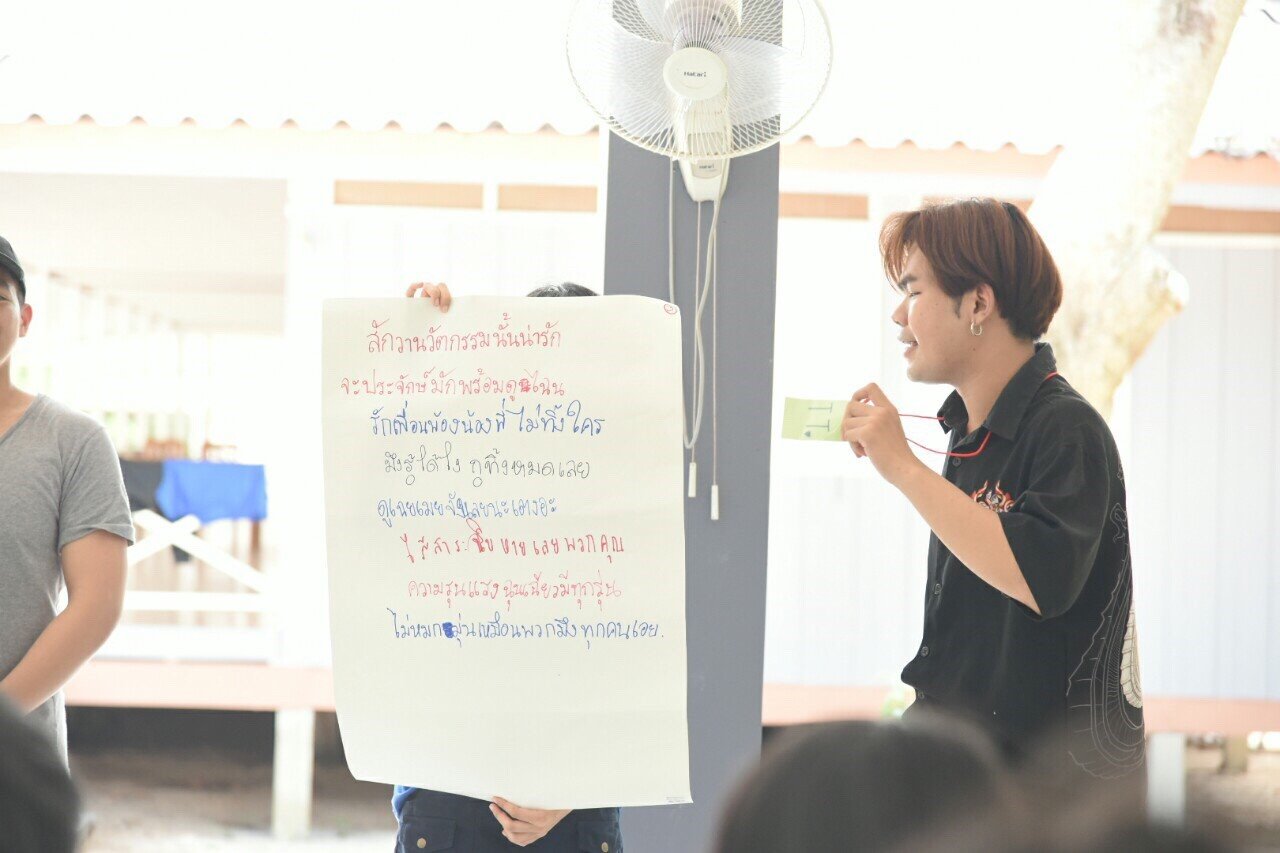 Hatari
สักวานวัตกรรมนั้นน่ารัก
จะประจักษ์มักพร้อมดูไฉน
รักเพื่อนพ้องน้องพี่ไม่ทิ้งใคร
มึงรู้ได้ไง กูทิ้งหมดเลย
ดูเฉยเมย
ไร้สาระ เลยพวกคุณ
ความรุนแรงฉุนเฉียวมีทุกรุ่น
ไม่หมกมุ่นเหมือนพวกมึงทุกคนเอย.
IT